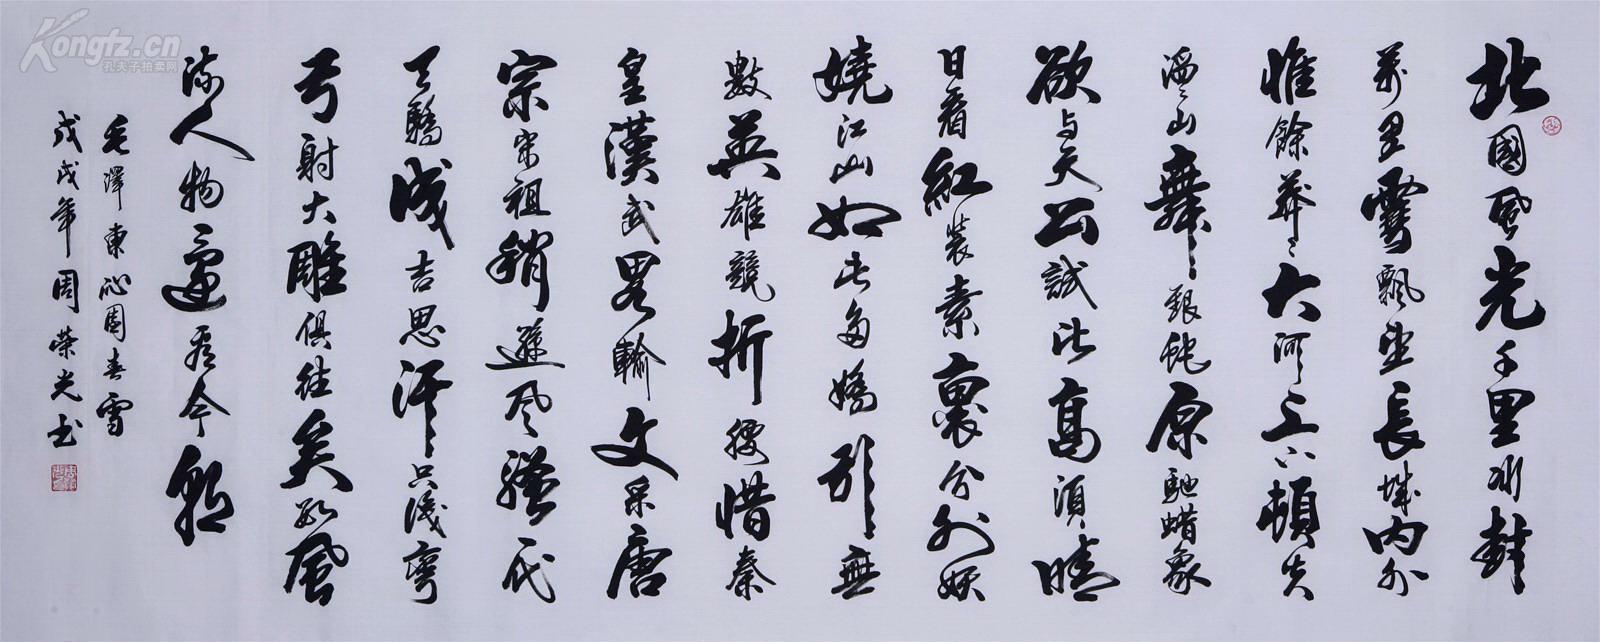 北國風光千里冰封
萬里雪飄望長城內外
惟餘莽々大河上下頓失
滔々山舞銀蛇原馳蜡象
欲与天公試比高須晴
日看紅裝素裹分外妖
嬈江山如此多嬌引無
數英雄競折腰惜秦
皇漢武畧輸文采唐
宗宋祖稍遜风騷一代
天驕成吉思汗只識彎
弓射大雕俱往矣數風
流人物還看今朝
毛澤東沁園春雪
戊戌年周榮光书
Kongfz.cn
孔夫子拍卖网